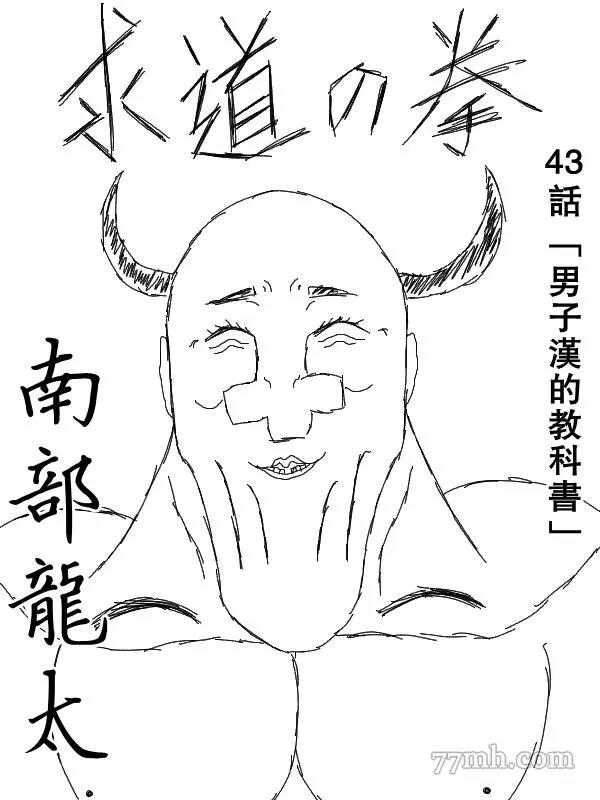 求道の拳
43話「男子漢的教科書」
南部龍太
77mh.com